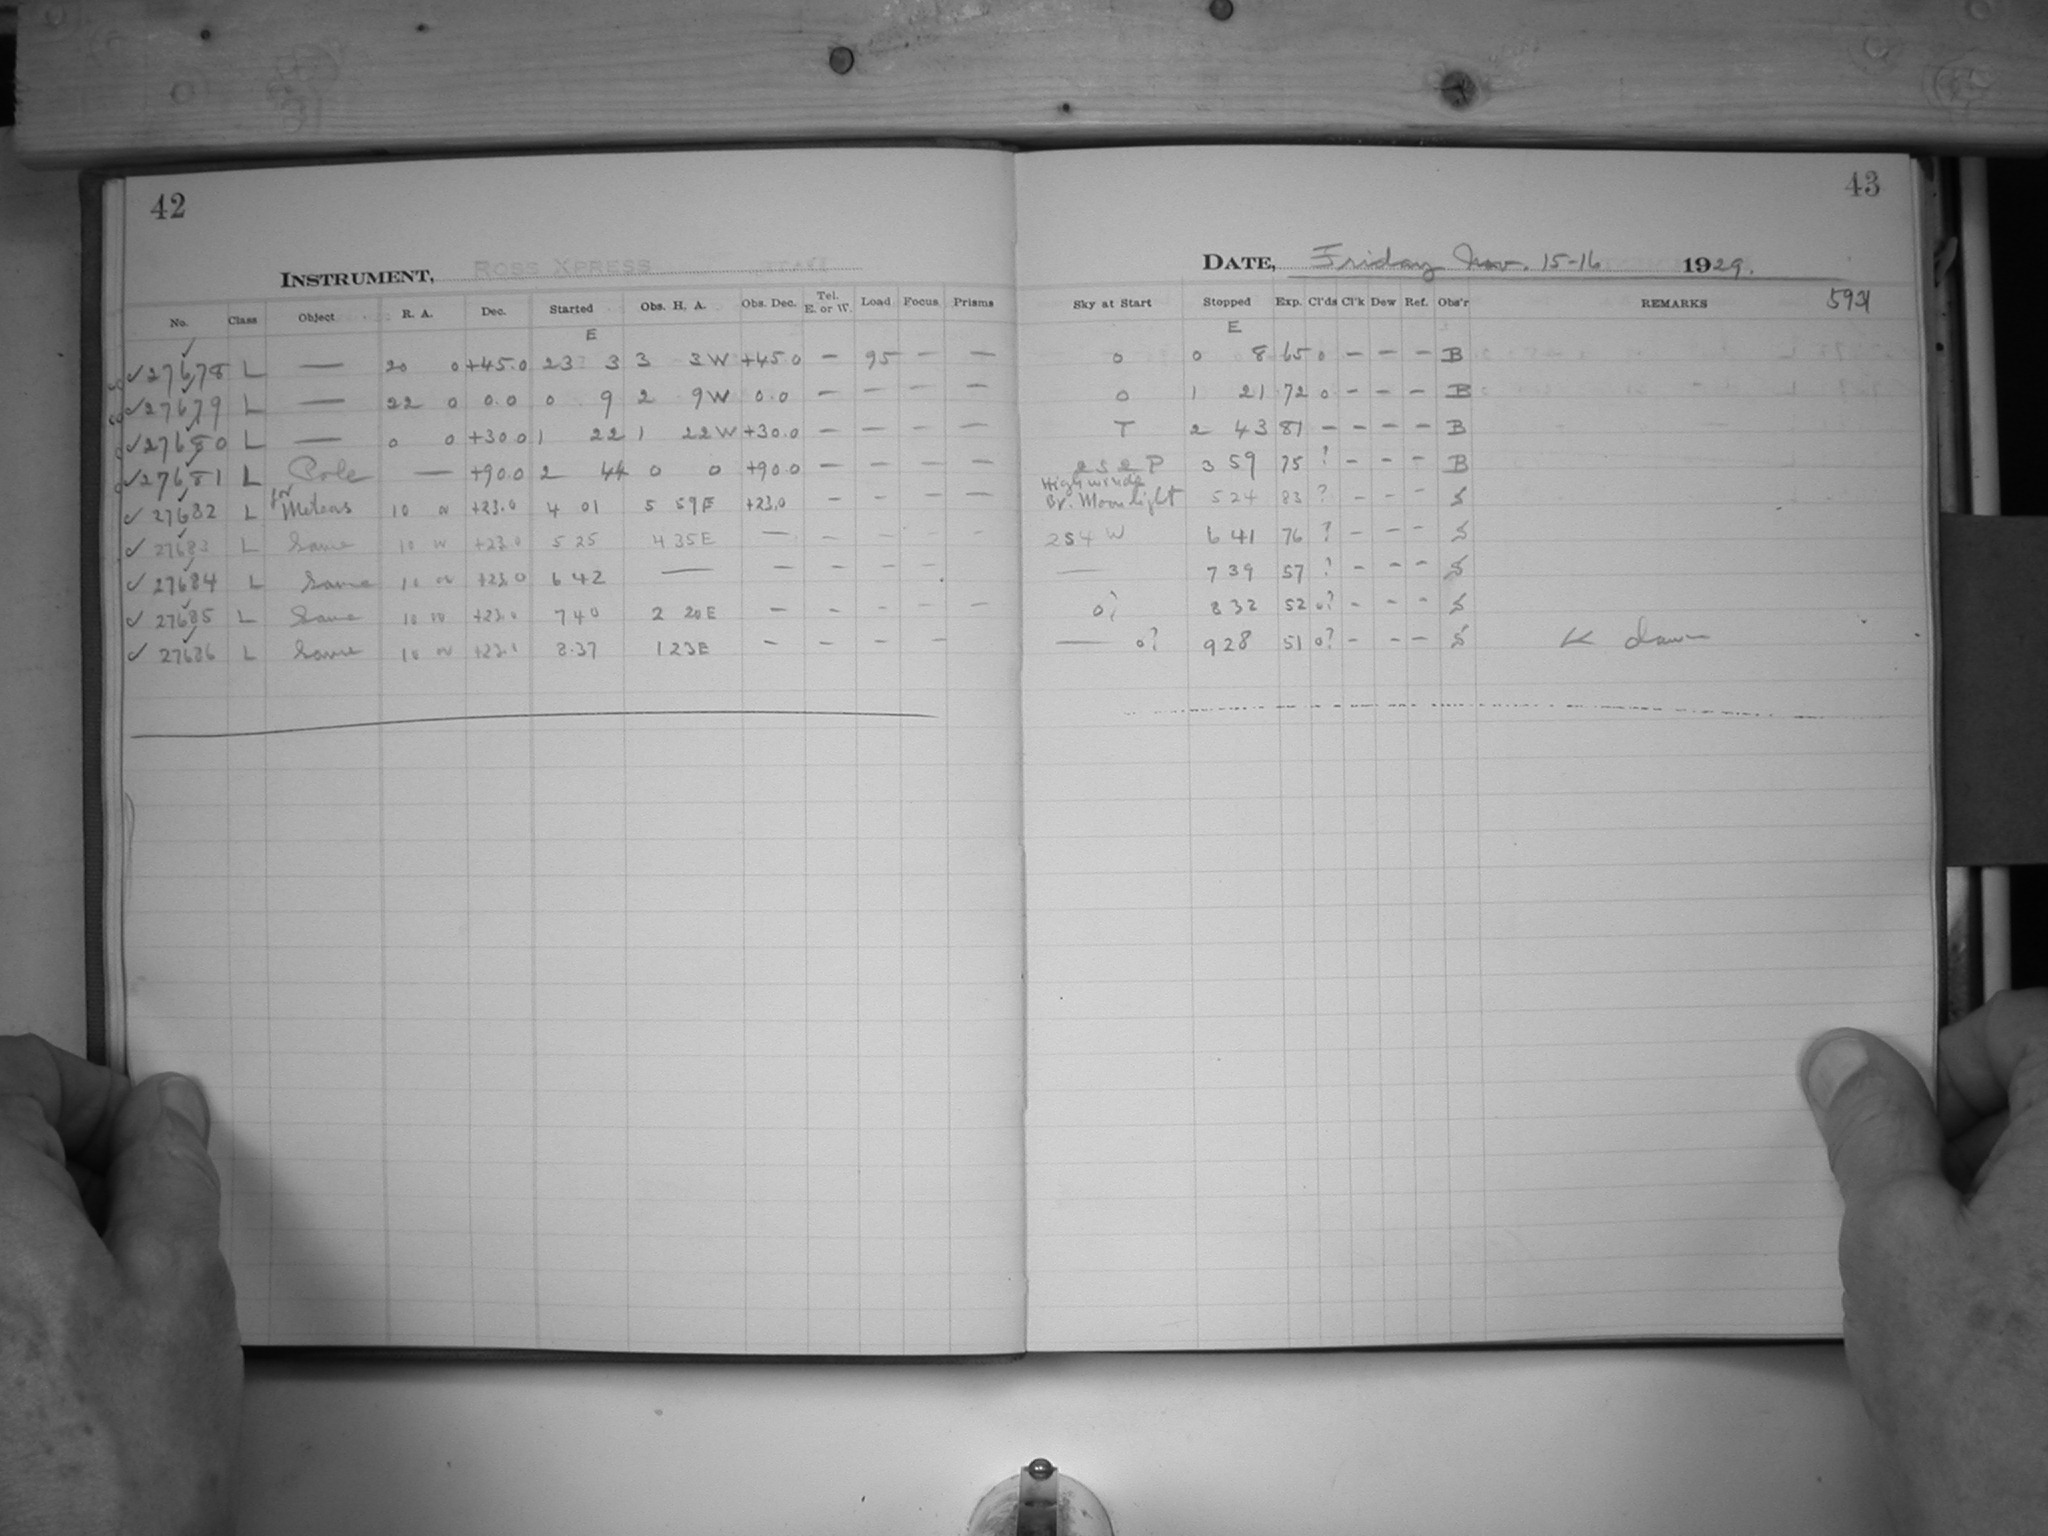 42
INSTRUMENT, ROSS XPRESS
No. Class Object R. A. Dec. Started Obs. H. A. Obs. Dec. Tel. E. or W. Load Focus Prisms
E
✓27678 L — 20 0 +45.0 23 3 3 3W +45.0 — 95 — —
✓27679 L — 22 0 0.0 0 9 2 9W 0.0 — — — —
✓27680 L — 0 0 +30.0 1 22 1 22W +30.0 — — — —
✓27681 L Pole — +90.0 2 44 0 0 +90.0 — — — —
✓27682 L for Meteors 10 +23.0 4 01 5 59E +23.0 — — — —
✓27683 L Same 10 +23.0 5 25 4 35E — — — — —
✓27684 L Same +23.0 6 42 — — — — — —
✓27685 L Same 10 +23.0 7 40 2 20E — — — — —
✓27686 L Same 8.37 1 23E — — — — —
43
DATE, Friday Nov. 15-16 1929.
Sky at Start Stopped Exp. Cl'ds Cl'k Dew Ref. Obs'r REMARKS
E
0 0 8 65 0 — — — B
0 1 21 72 0 — — — B
T 2 43 81 — — — — B
2S2P 3 59 75 ? — — — B
High winds
Br. Moonlight 5 24 83 ? — — — S
2S4W 6 41 76 ? — — — S
— 7 39 57 ? — — — S
0? 8 32 52 0? — — — S
— 0? 9 28 51 0? — — — S K dawn